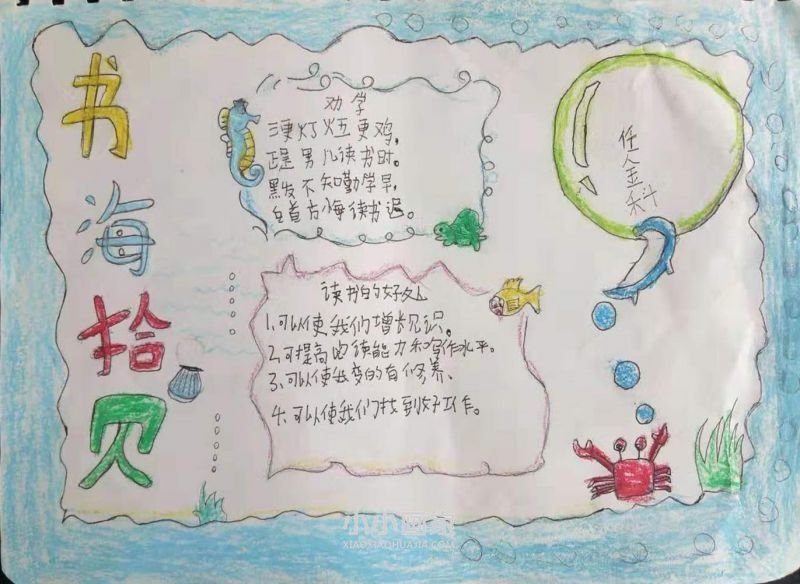 书海拾贝
劝学
三更灯火五更鸡,
正是男儿读书时。
黑发不知勤学早,
白首方悔读书迟。
任金科
读书的好处
1.可以使我们增长见识。
2.可提高阅读能力和写作水平。
3.可以使我变的有修养、
4.可以使我们找到好工作。
小小画家
XIAOXIAOHUAJIA.COM